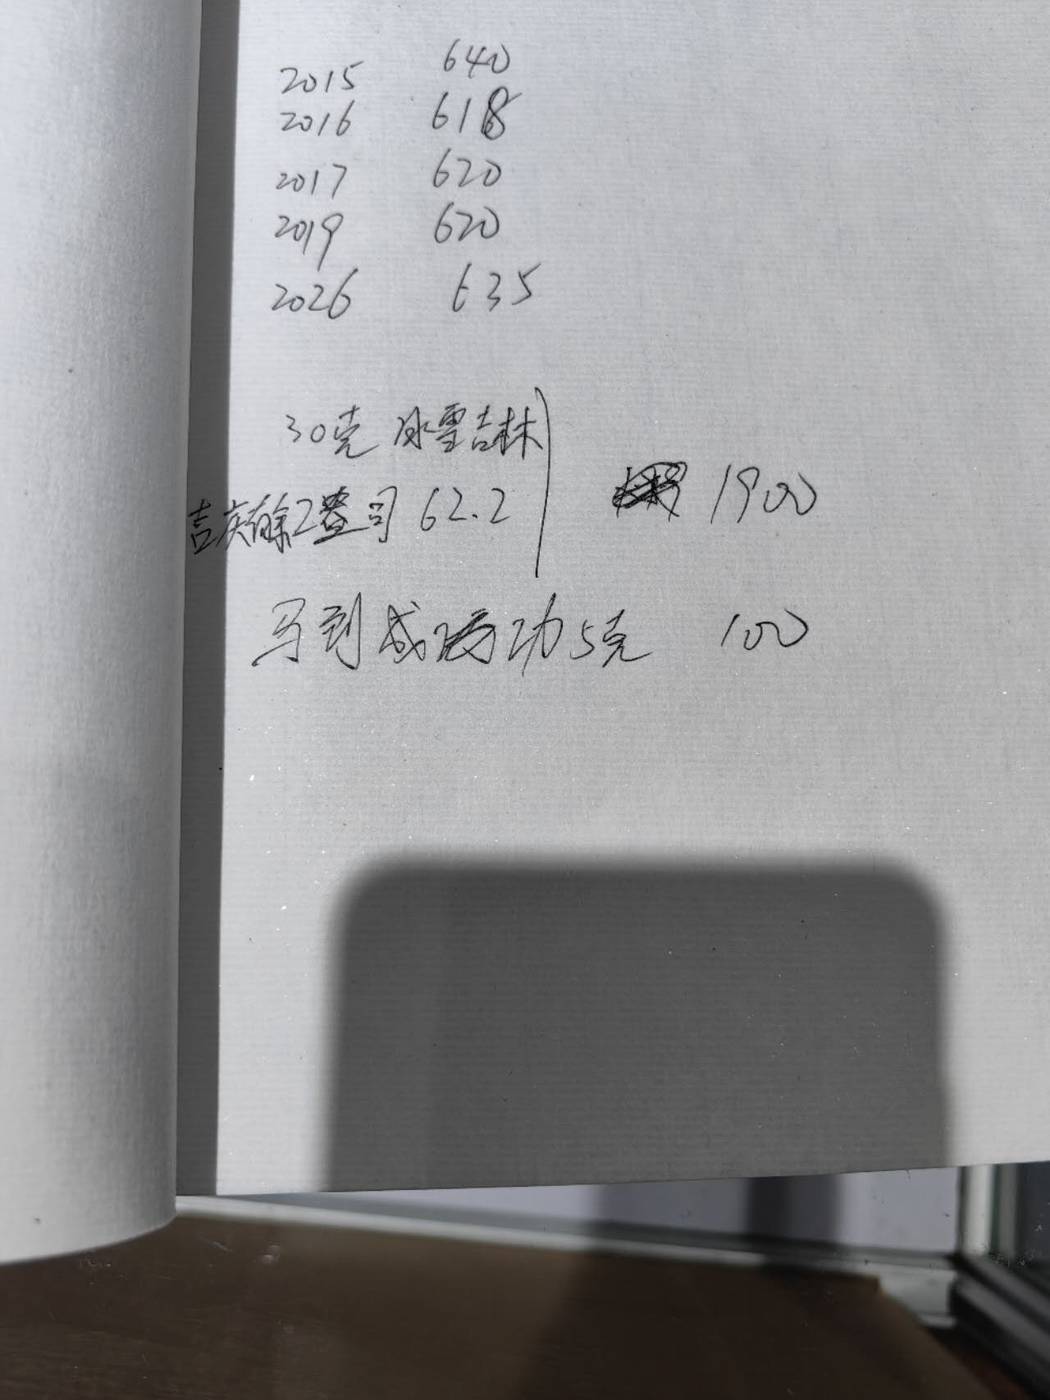 2015 640
2016 618
2017 620
2019 620
2026 635
30克 冰雪吉林
吉庆有余2盎司 62.2 1900
马到成功5克 100